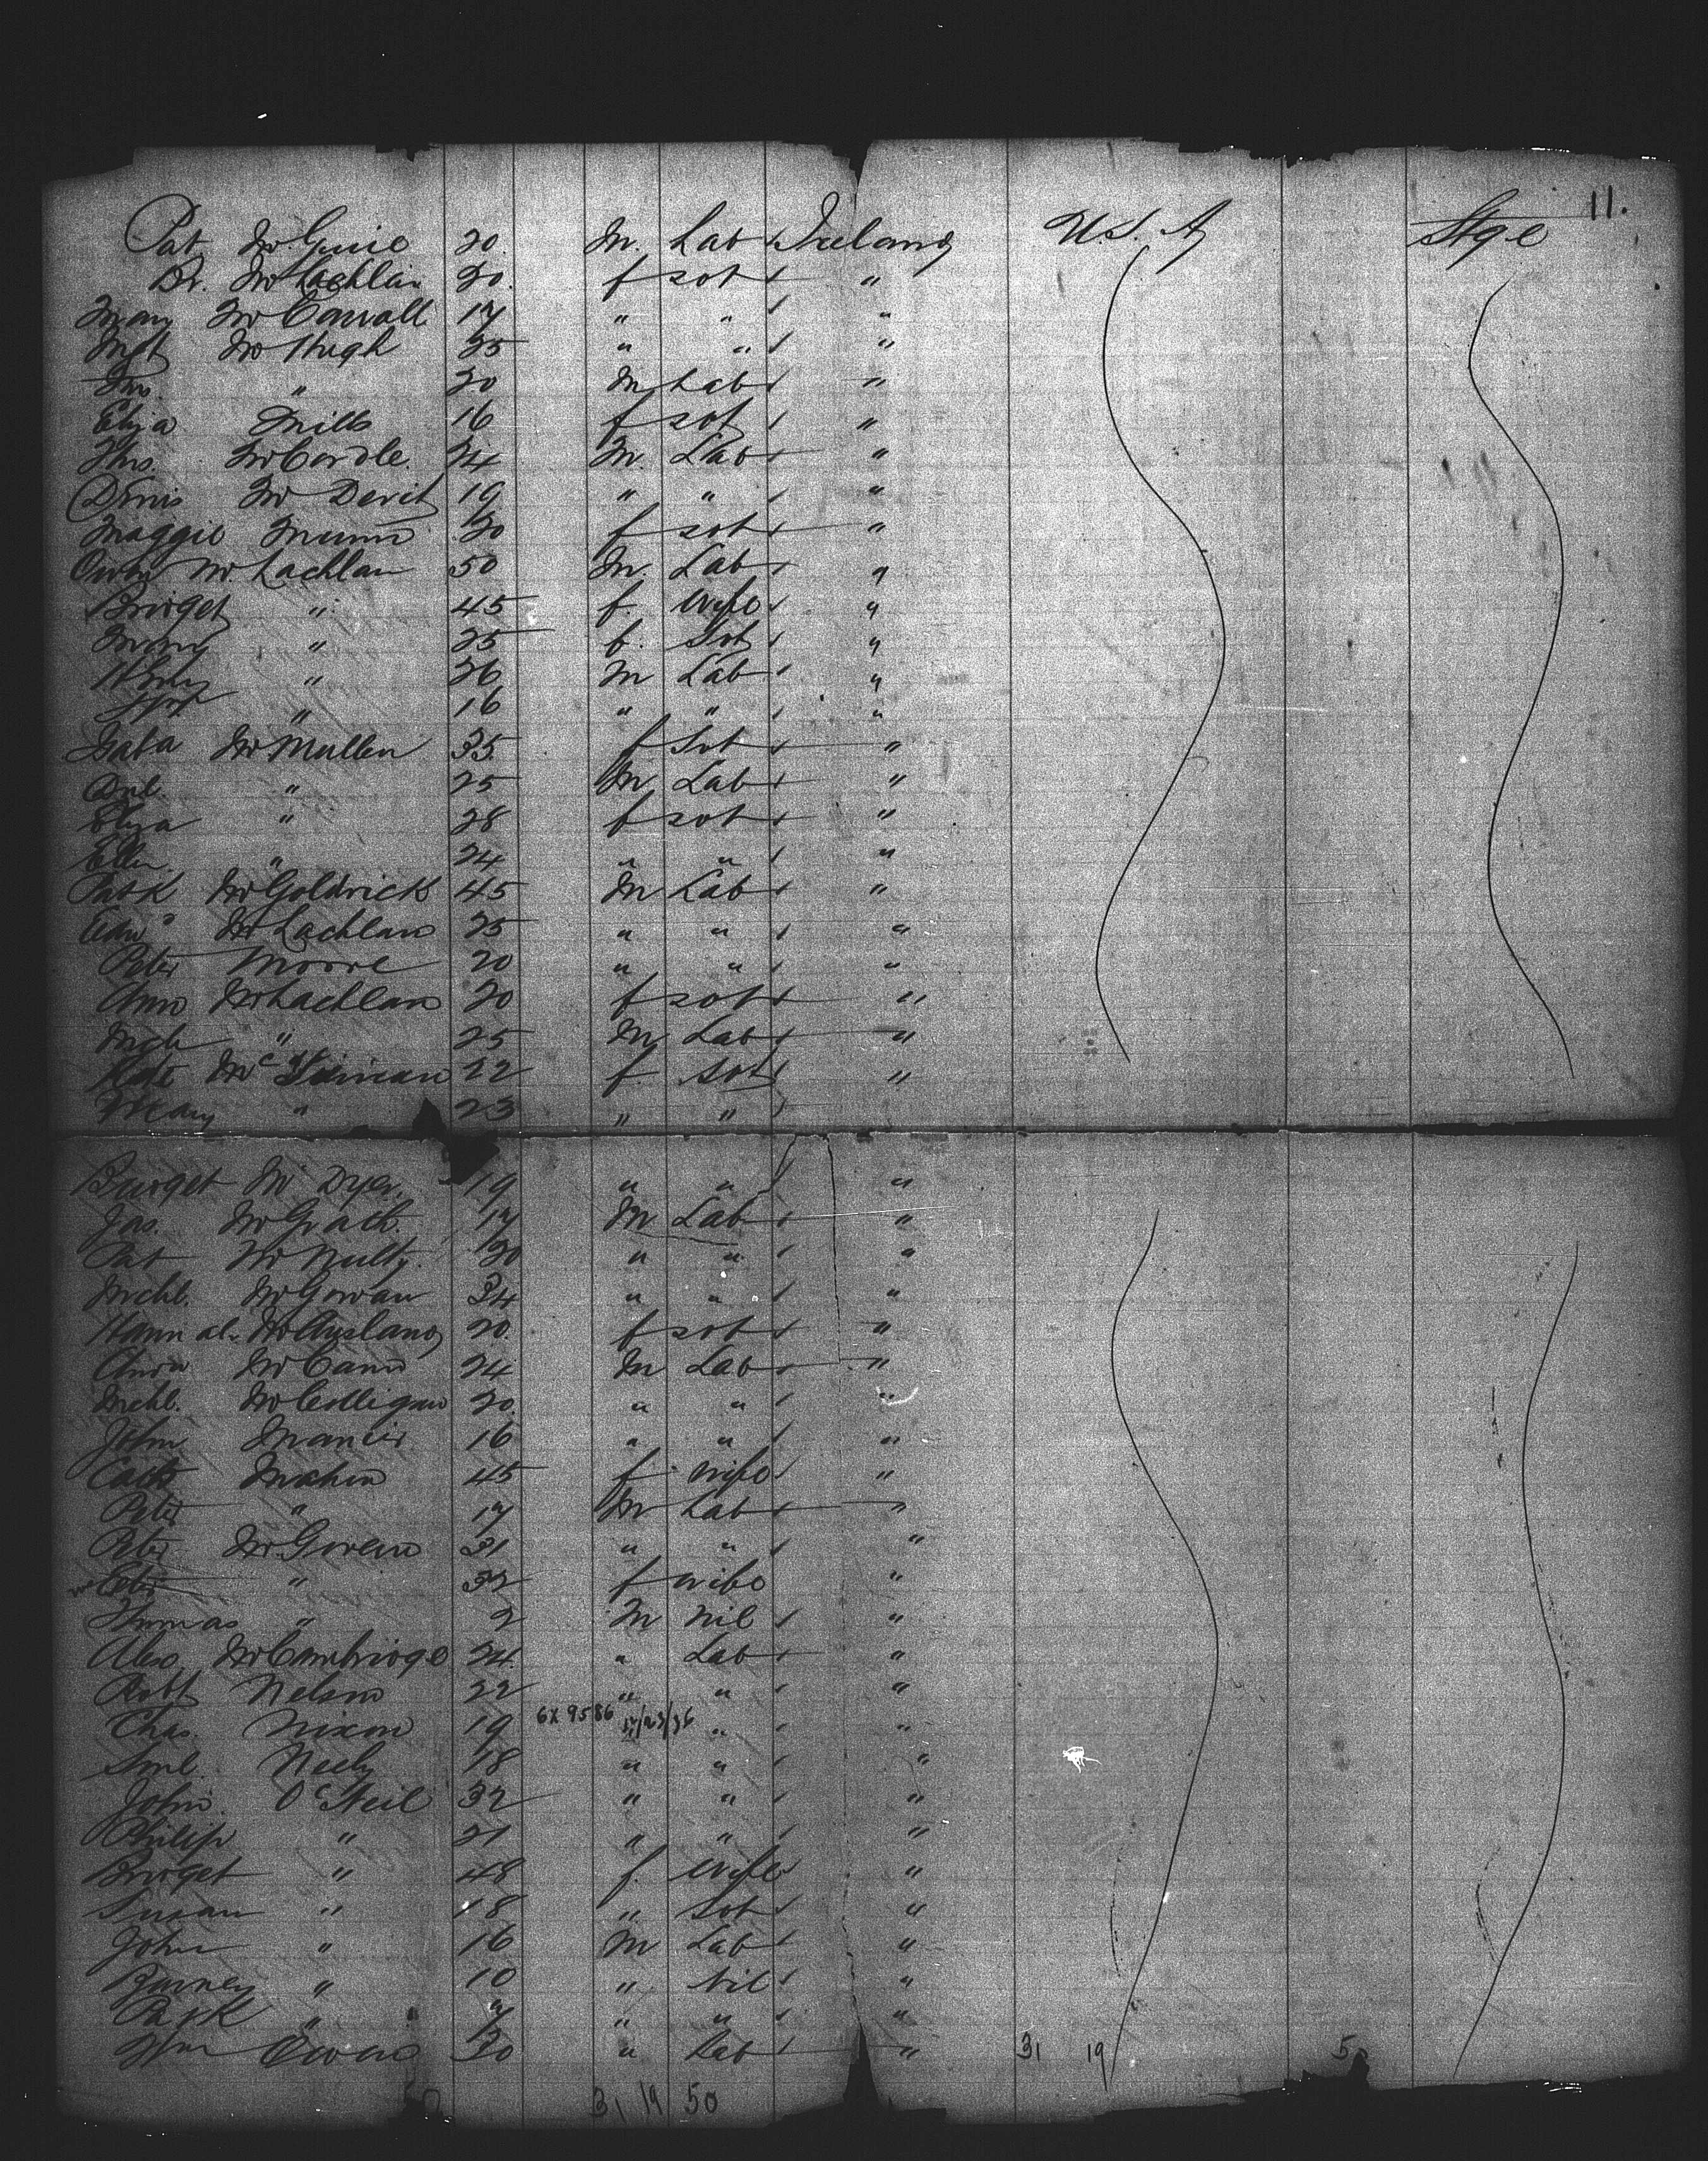 11.
Pat McGuire 20. M. Lab Ireland U.S.A Stge
Br. McLachlan 20. f spt "
Mary McCarroll 17 " " "
Mgt McHugh 25 " " "
" 20 M Lab "
Eliza Mills 16 f spt "
Thos. McCardle. 24 M. Lab "
Denis McDevit 19 " " "
Maggie Munn 20 f spt "
Owen McLachlan 50 M. Lab "
Bridget " 45 f. wife "
Mary " 25 f. Spt "
Henry " 26 M Lab "
" 16 " " "
McMullen 35. f Spt "
Dnl. " 25 M Lab "
Eliza " 28 f spt "
Ellen " 24 " " "
Patk McGoldrick 45 M Lab "
Edwd McLachlan 25 " " "
Peter Moore 20 " " "
Ann McLachlan 20 f spt "
Mch " 25 M Lab "
Kate Mc 22 f. spt "
Mary " 23 " "
Bridget McDyer. 19 " " "
Jas. McGrath. 17 M Lab "
Pat McNulty. 20 " " "
Michl. McGowan 34 " " "
Hannah McAusland 20. f spt "
Andw McCann 24 M Lab "
Michl. McColligan 20. " " "
John 16 " " "
Cath Mahon 45 f wife "
Peter " 17 M Lab "
Peter McGowan 31 " " "
Mrs Peter " 32 f wife "
Thomas " 2 M Nil "
Alex. McCambridge 24. " Lab "
Robt Nelson 22 " " "
Chas. Nixon 19 6X 9586 " "
Sml. Neely 18 " " "
John. O'Neil 32 " " "
Philip " 21 " " "
Bridget " 48 f. wife "
Susan " 18 " Spt "
John " 16 M Lab "
Barney " 10 " Nil "
Patk " 7 " " "
Wm Owens 30 " Lab " 31 19 50
50 31 19 50